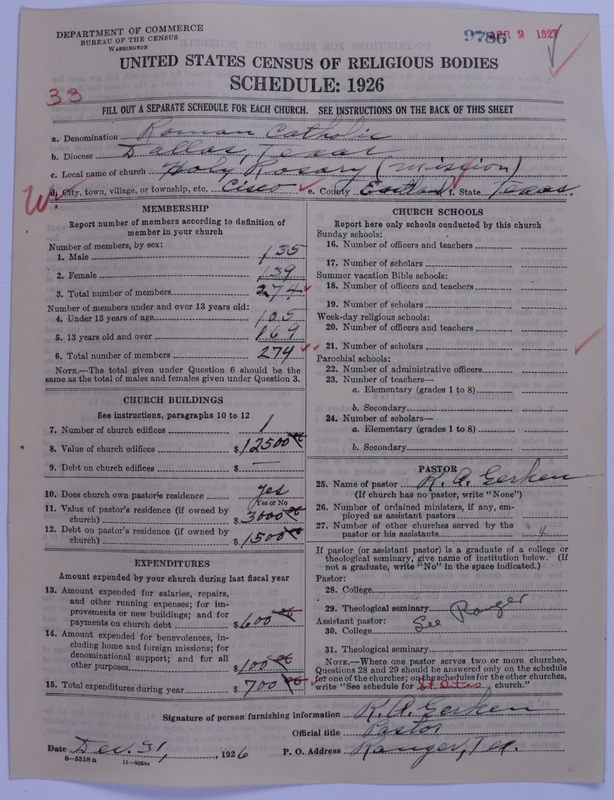 DEPARTMENT OF COMMERCE
BUREAU OF THE CENSUS
WASHINGTON
9786 APR 2 1927
UNITED STATES CENSUS OF RELIGIOUS BODIES
SCHEDULE: 1926
33
FILL OUT A SEPARATE SCHEDULE FOR EACH CHURCH. SEE INSTRUCTIONS ON THE BACK OF THIS SHEET
a. Denomination Roman Catholic
b. Diocese Dallas, Texas
c. Local name of church Holy Rosary (Mission)
d. City, town, village, or township, etc. Cisco e. County Eastland f. State Texas.
MEMBERSHIP
Report number of members according to definition of
member in your church
Number of members, by sex:
1. Male 135
2. Female 139
3. Total number of members 274
Number of members under and over 13 years old:
4. Under 13 years of age 105
5. 13 years old and over 169
6. Total number of members 274
NOTE.—The total given under Question 6 should be
same as the total of males and females given under Question 3.
CHURCH BUILDINGS
See instructions, paragraphs 10 to 12
7. Number of church edifices 1
8. Value of church edifices $12500 00
9. Debt on church edifices $ —
10. Does church own pastor's residence yes
Yes or No
11. Value of pastor's residence (if owned by
church) $3000 00
12. Debt on pastor's residence (if owned by
church) $1500 00
EXPENDITURES
Amount expended by your church during last fiscal year
13. Amount expended for salaries, repairs,
and other running expenses; for im-
provements or new buildings; and for
payments on church debt $600 00
14. Amount expended for benevolences, in-
cluding home and foreign missions; for
denominational support; and for all
other purposes $100 00
15. Total expenditures during year $700 00
CHURCH SCHOOLS
Report here only schools conducted by this church
Sunday schools:
16. Number of officers and teachers
17. Number of scholars
Summer vacation Bible schools:
18. Number of officers and teachers
19. Number of scholars
Week-day religious schools:
20. Number of officers and teachers
21. Number of scholars
Parochial schools:
22. Number of administrative officers
23. Number of teachers—
a. Elementary (grades 1 to 8)
b. Secondary
24. Number of scholars—
a. Elementary (grades 1 to 8)
b. Secondary
PASTOR
25. Name of pastor R. A. Gerken
(If church has no pastor, write "None")
26. Number of ordained ministers, if any, em-
ployed as assistant pastors
27. Number of other churches served by the
pastor or his assistants 4
If pastor (or assistant pastor) is a graduate of a college or
theological seminary, give name of institution below. (If
not a graduate, write "No" in the space indicated.)
Pastor:
28. College
29. Theological seminary
See Ranger
Assistant pastor:
30. College
31. Theological seminary
NOTE.—Where one pastor serves two or more churches,
Questions 28 and 29 should be answered only on the schedule
for one of the churches; on the schedules for the other churches,
write "See schedule for St. Rita's church."
Signature of person furnishing information R. A. Gerken
Official title Pastor
Date Dec. 31, 1926 P. O. Address Ranger, Tex.